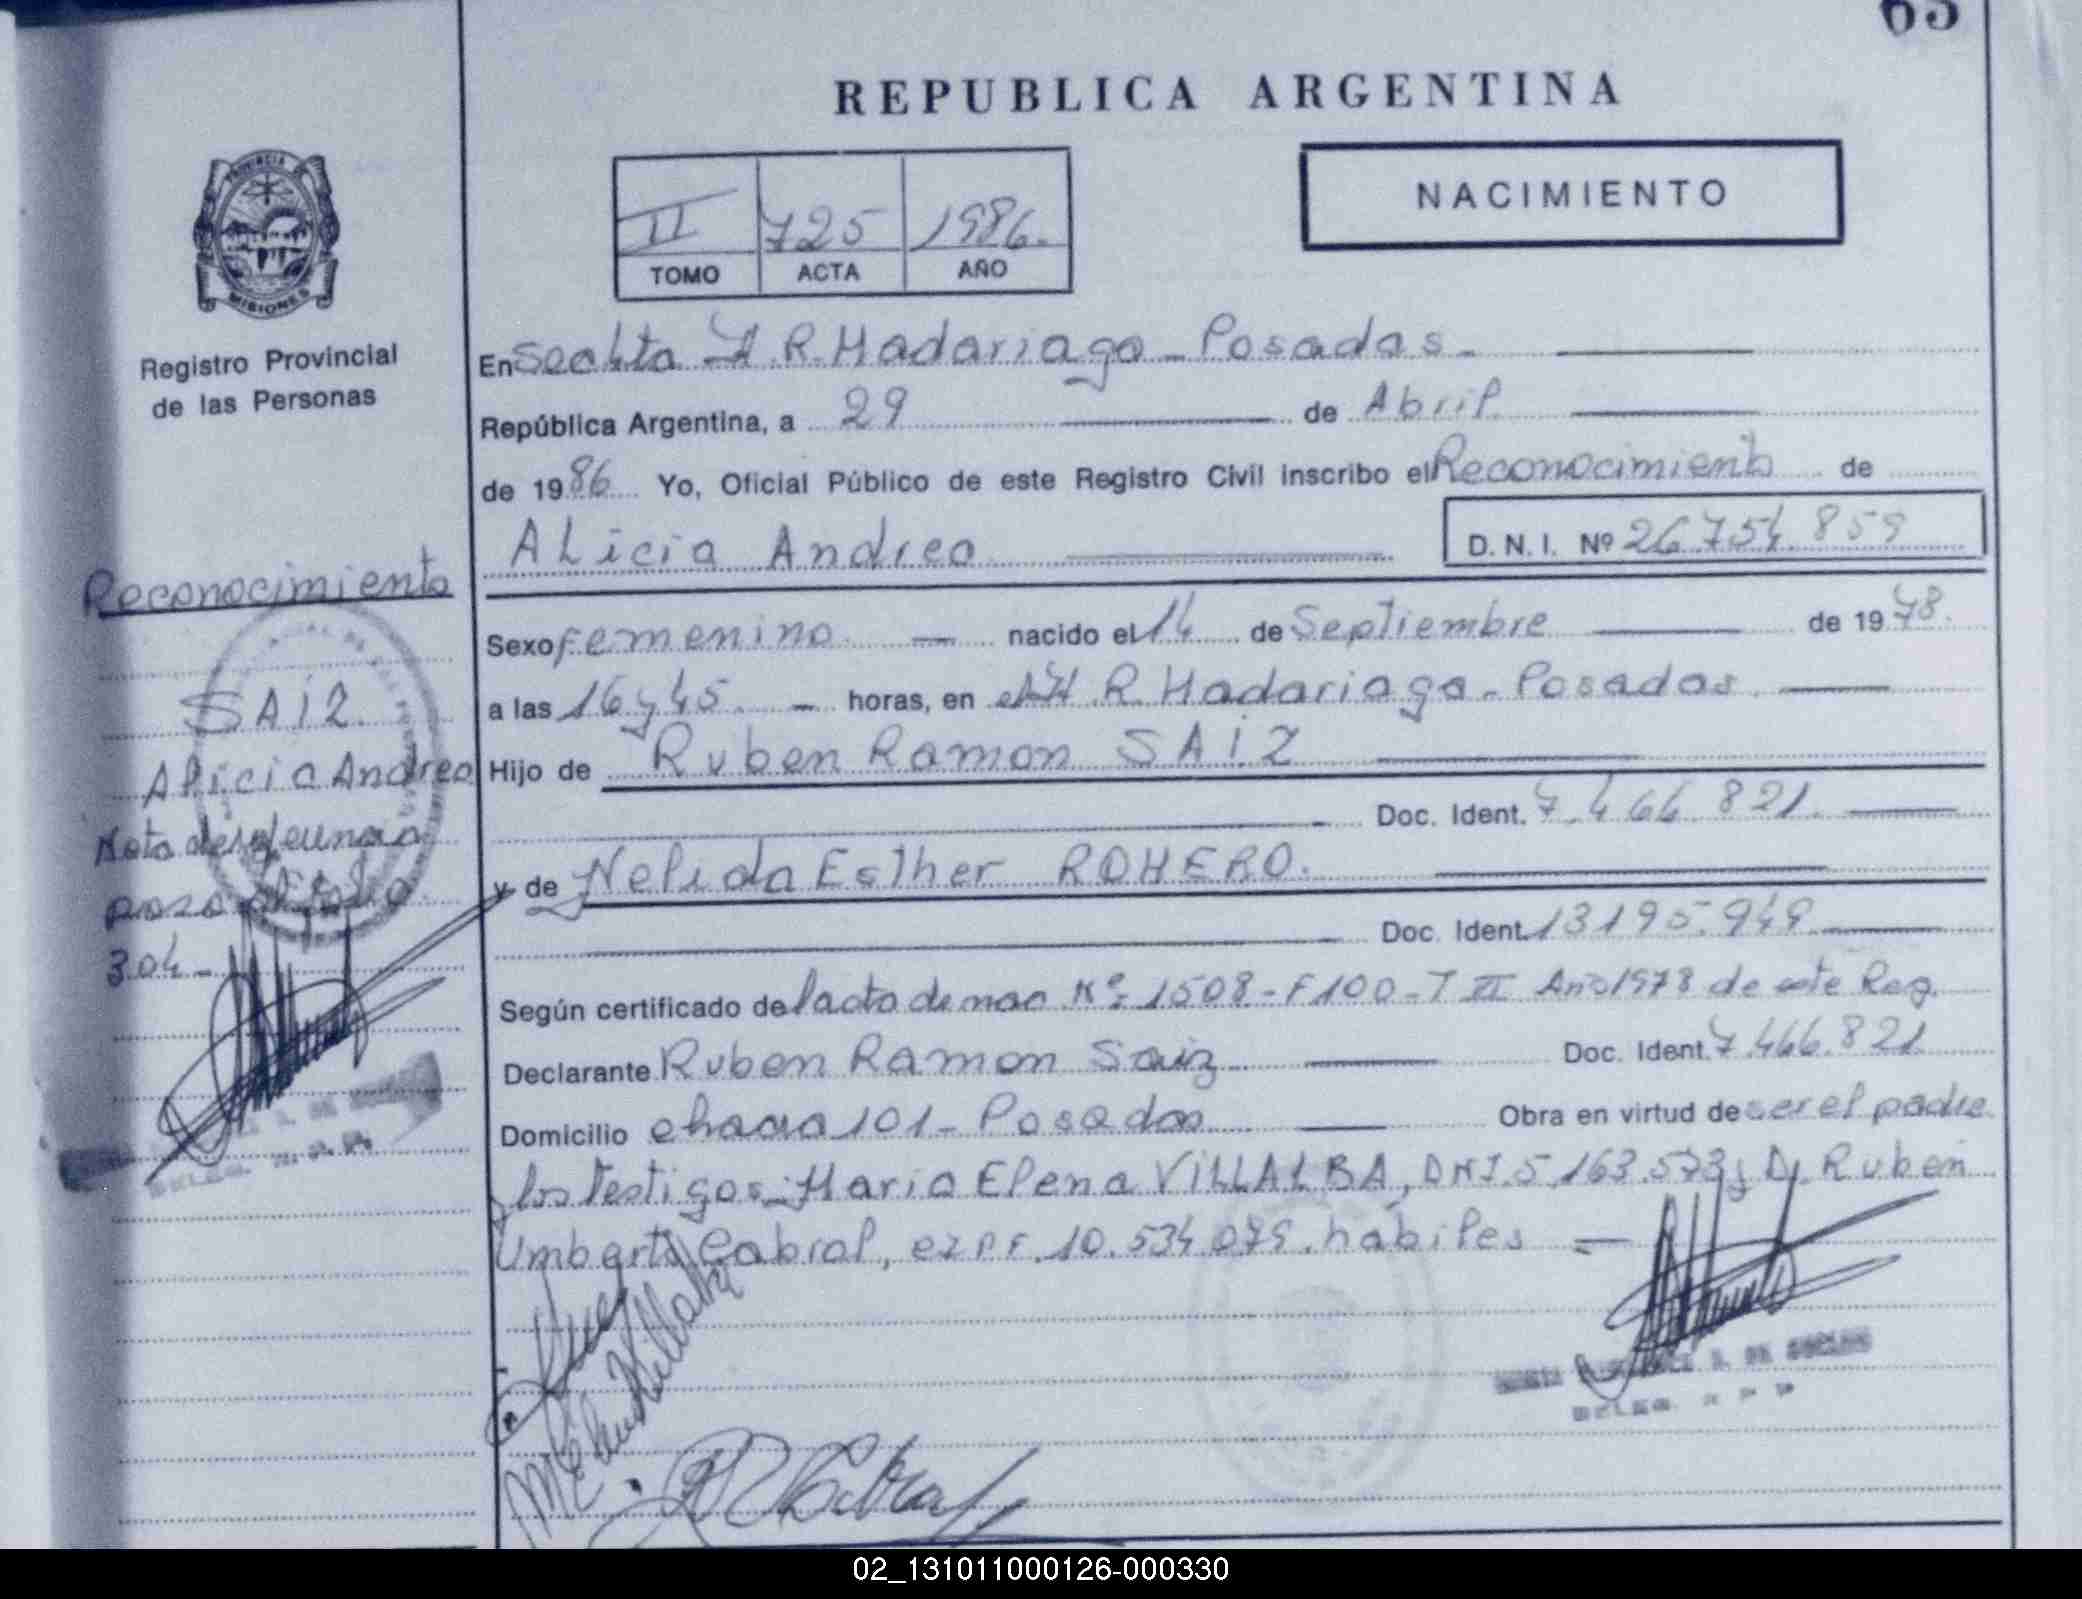 65
REPUBLICA ARGENTINA
PROVINCIA
MISIONES
Registro Provincial
de las Personas
II 725 1986.
TOMO ACTA AÑO
NACIMIENTO
En R. Madariaga - Posadas -
República Argentina, a 29 de Abril
de 1986 Yo, Oficial Público de este Registro Civil inscribo el Reconocimiento de
ALicia Andrea D. N. I. Nº 26.754.859
Sexo femenino. — nacido el 14 de Septiembre de 1978.
a las 16 y 45. — horas, en el H. R. Madariaga - Posadas.
Hijo de Ruben Ramon SAIZ
Doc. Ident. 7.466.821.
y de Nelida Esther ROMERO.
Doc. Ident. 13195.949
Según certificado de acta de nac Nº 1508 - F 100 - T II Año 1978 de este Reg.
Declarante Ruben Ramon Saiz Doc. Ident. 7.466.821
Domicilio chacra 101 - Posadas Obra en virtud de ser el padre
y los Testigos Maria Elena VILLALBA, DNI. 5.163.573 y D. Ruben
Umberto Cabral, 10.534.079. hábiles —
Reconocimiento
SAIZ
Alicia Andrea
Nota de
paso
304 -
02_131011000126-000330